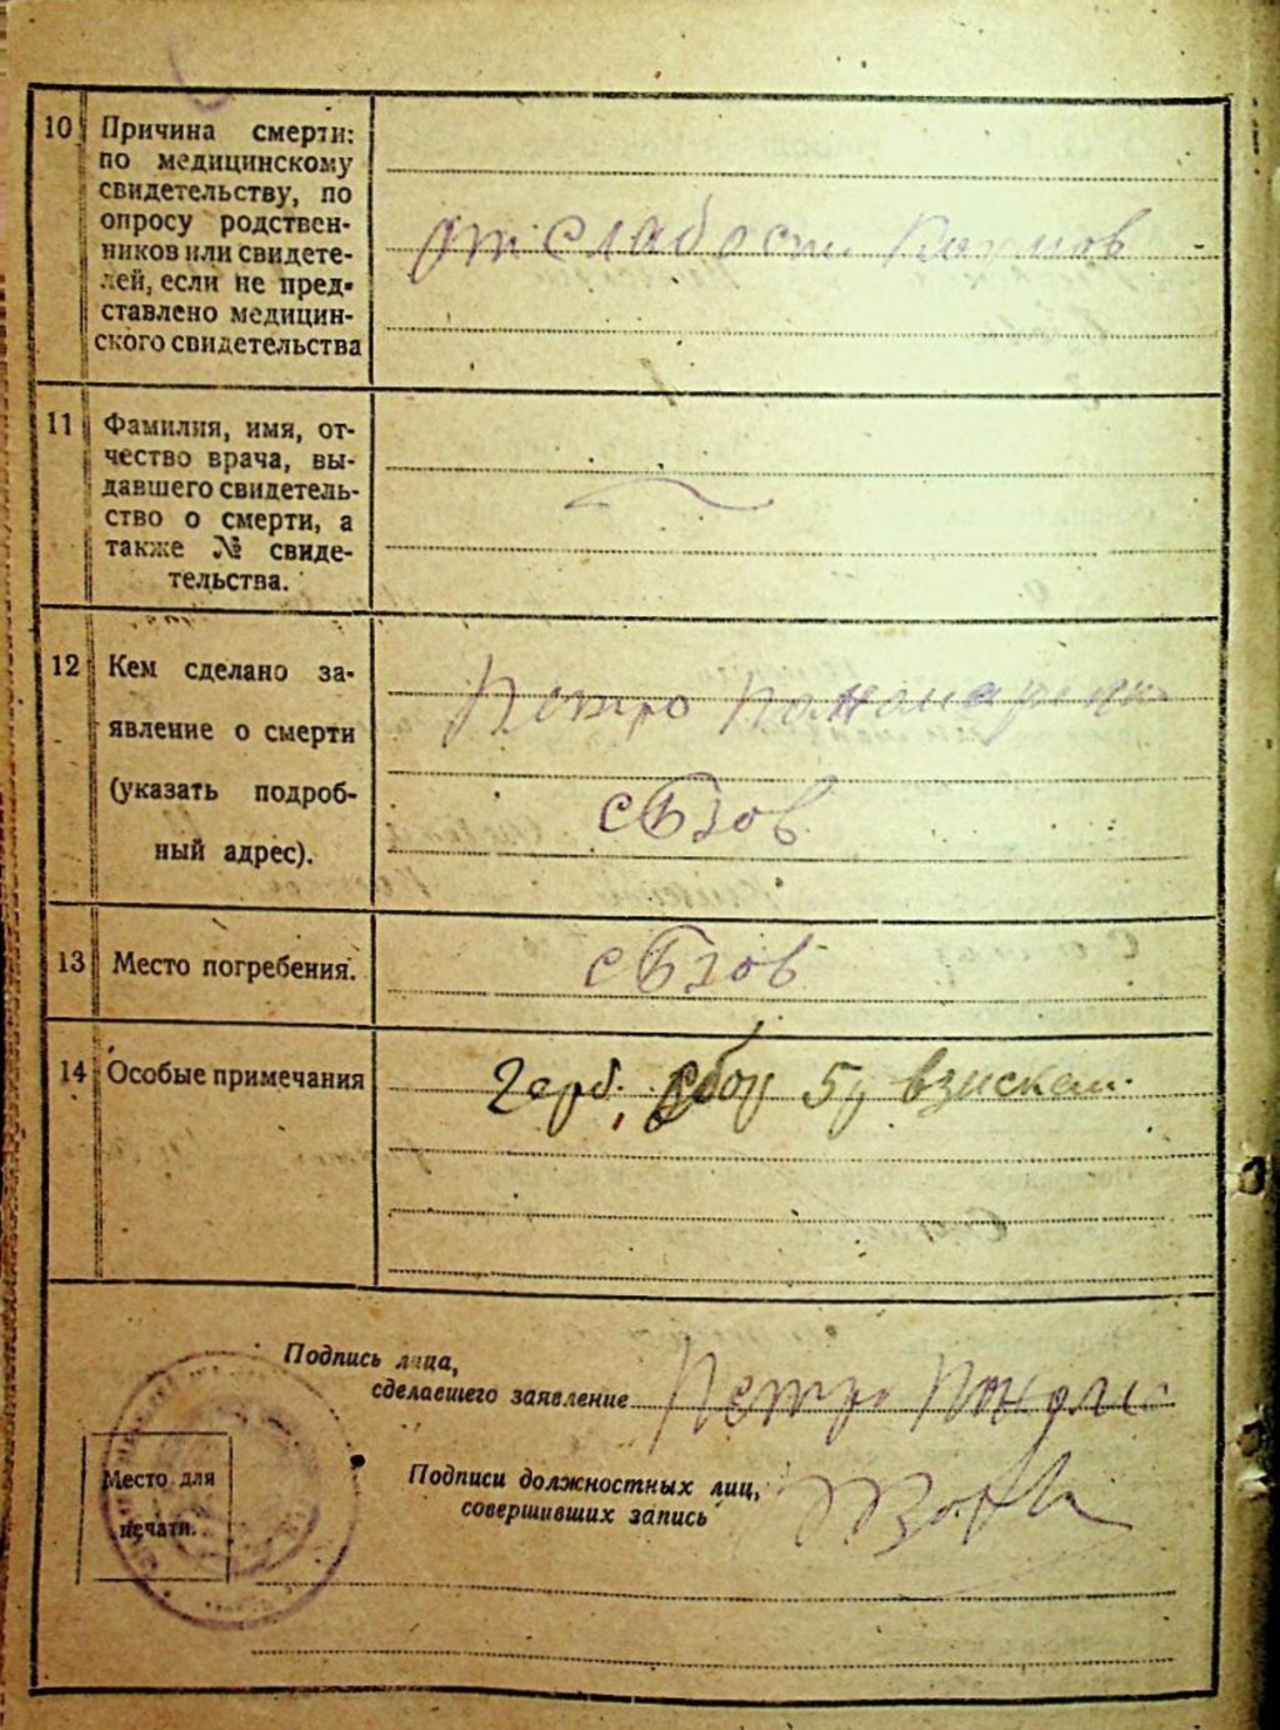 10
Причина смерти:
по медицинскому
свидетельству, по
опросу родствен-
ников или свидете-
лей, если не пред-
ставлено медицин-
ского свидетельства
от слабости
11
Фамилия, имя, от-
чество врача, вы-
давшего свидетель-
ство о смерти, а
также № свиде-
тельства.
12
Кем сделано за-
явление о смерти
(указать подроб-
ный адрес).
Петро
с Бзов
13
Место погребения.
с Бзов
14
Особые примечания
Герб. сбор 5
Подпись лица,
сделавшего заявление
Петро
Подписи должностных лиц,
совершивших запись
Место для
печати.